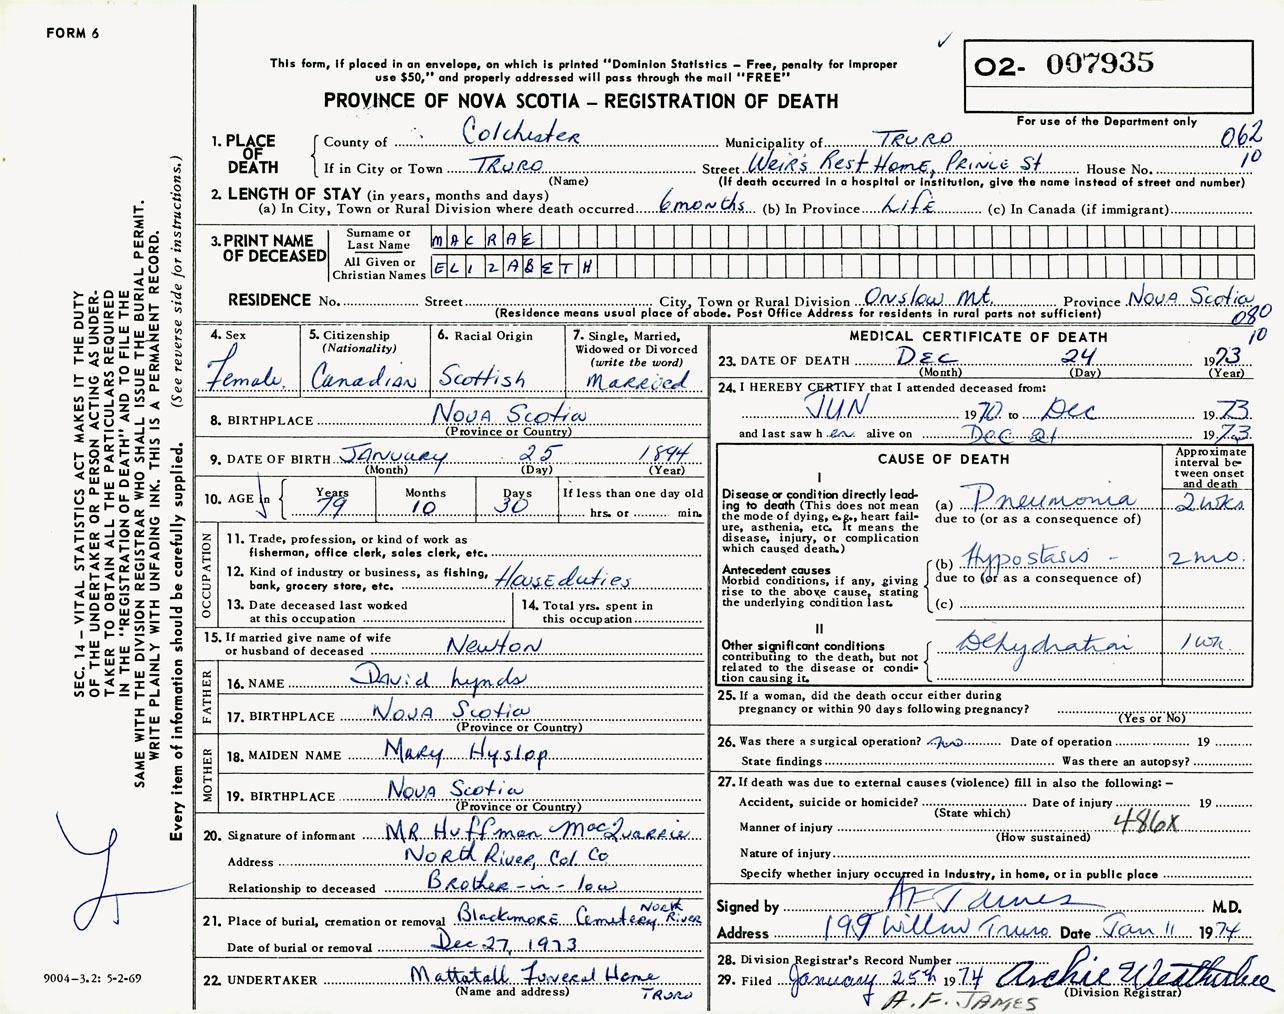 FORM 6
This form, if placed in an envelope, on which is printed "Dominion Statistics – Free, penalty for improper
use $50," and properly addressed will pass through the mail "FREE"
PROVINCE OF NOVA SCOTIA – REGISTRATION OF DEATH
02- 007935
For use of the Department only
062
10
1. PLACE OF DEATH
County of Colchester Municipality of TRURO
If in City or Town TRURO Street Weir's Rest Home, Prince St House No.
(Name) (If death occurred in a hospital or institution, give the name instead of street and number)
2. LENGTH OF STAY (in years, months and days)
(a) In City, Town or Rural Division where death occurred 6 months (b) In Province Life (c) In Canada (if immigrant)
3. PRINT NAME OF DECEASED
Surname or Last Name MAC RAE
All Given or Christian Names ELIZABETH
RESIDENCE No. Street City, Town or Rural Division Onslow Mt. Province Nova Scotia
(Residence means usual place of abode. Post Office Address for residents in rural parts not sufficient)
080
10
4. Sex Female
5. Citizenship (Nationality) Canadian
6. Racial Origin Scottish
7. Single, Married, Widowed or Divorced (write the word) Married
8. BIRTHPLACE Nova Scotia
(Province or Country)
9. DATE OF BIRTH January 25 1894
(Month) (Day) (Year)
10. AGE in Years 79 Months 10 Days 30 If less than one day old
hrs. or min.
OCCUPATION
11. Trade, profession, or kind of work as
fisherman, office clerk, sales clerk, etc.
12. Kind of industry or business, as fishing,
bank, grocery store, etc. House duties
13. Date deceased last worked
at this occupation
14. Total yrs. spent in
this occupation
15. If married give name of wife
or husband of deceased Newton
FATHER
16. NAME David Lynds
17. BIRTHPLACE Nova Scotia
(Province or Country)
MOTHER
18. MAIDEN NAME Mary Hyslop
19. BIRTHPLACE Nova Scotia
(Province or Country)
20. Signature of informant MR Huffman MacQuarrie
Address North River, Col. Co
Relationship to deceased Brother-in-law
21. Place of burial, cremation or removal Blackmore Cemetery North River
Date of burial or removal Dec 27, 1973
22. UNDERTAKER Mattatall Funeral Home
(Name and address) TRURO
MEDICAL CERTIFICATE OF DEATH
23. DATE OF DEATH DEC 24 1973
(Month) (Day) (Year)
24. I HEREBY CERTIFY that I attended deceased from:
JUN 1970 to Dec 1973
and last saw h er alive on Dec 21 1973
CAUSE OF DEATH
Approximate interval between onset and death
I
Disease or condition directly lead-
ing to death (This does not mean
the mode of dying, e.g., heart fail-
ure, asthenia, etc. It means the
disease, injury, or complication
which caused death.)
(a) Pneumonia 2 wks
due to (or as a consequence of)
Antecedent causes
Morbid conditions, if any, giving
rise to the above cause, stating
the underlying condition last.
(b) Hypostasis – 2 mo.
due to (or as a consequence of)
(c)
II
Other significant conditions
contributing to the death, but not
related to the disease or condi-
tion causing it.
Dehydration 1 wk.
25. If a woman, did the death occur either during
pregnancy or within 90 days following pregnancy?
(Yes or No)
26. Was there a surgical operation? no Date of operation 19
State findings Was there an autopsy?
27. If death was due to external causes (violence) fill in also the following: –
Accident, suicide or homicide? Date of injury 19
(State which)
Manner of injury 486X
(How sustained)
Nature of injury
Specify whether injury occurred in industry, in home, or in public place
Signed by AF James M.D.
Address 199 Willow Truro Date Jan 11 1974
28. Division Registrar's Record Number
29. Filed January 25th 1974 Archie Weatherbee
(Division Registrar)
A. F. JAMES
SEC. 14 – VITAL STATISTICS ACT MAKES IT THE DUTY
OF THE UNDERTAKER OR PERSON ACTING AS UNDER-
TAKER TO OBTAIN ALL THE PARTICULARS REQUIRED
IN THE "REGISTRATION OF DEATH" AND TO FILE THE
SAME WITH THE DIVISION REGISTRAR WHO SHALL ISSUE THE BURIAL PERMIT.
WRITE PLAINLY WITH UNFADING INK. THIS IS A PERMANENT RECORD.
Every item of information should be carefully supplied. (See reverse side for instructions.)
9004–3.2: 5-2-69